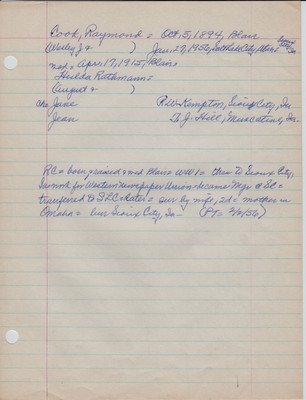 Cook, Raymond = Oct. 5, 1894, Blair
(Wesley J & ) Jan. 27, 1956, Salt Lake City, Utah =
md = Apr. 17, 1915, Blair =
Hilda Rathmann =
(August & )
ch: Jane R.W. Kempton, Sioux City, Ia
Jean T. J. Hill, Muscatine, Ia.
RC = born, raised & md Blair = WW1 = then to Sioux City,
Ia = wk for Western Newspaper Union = became Mgr of SC =
transferred to SLC = later = sur by wife, 2d = mother in
Omaha = bur Sioux City, Ia = (PT = 2/2/56)